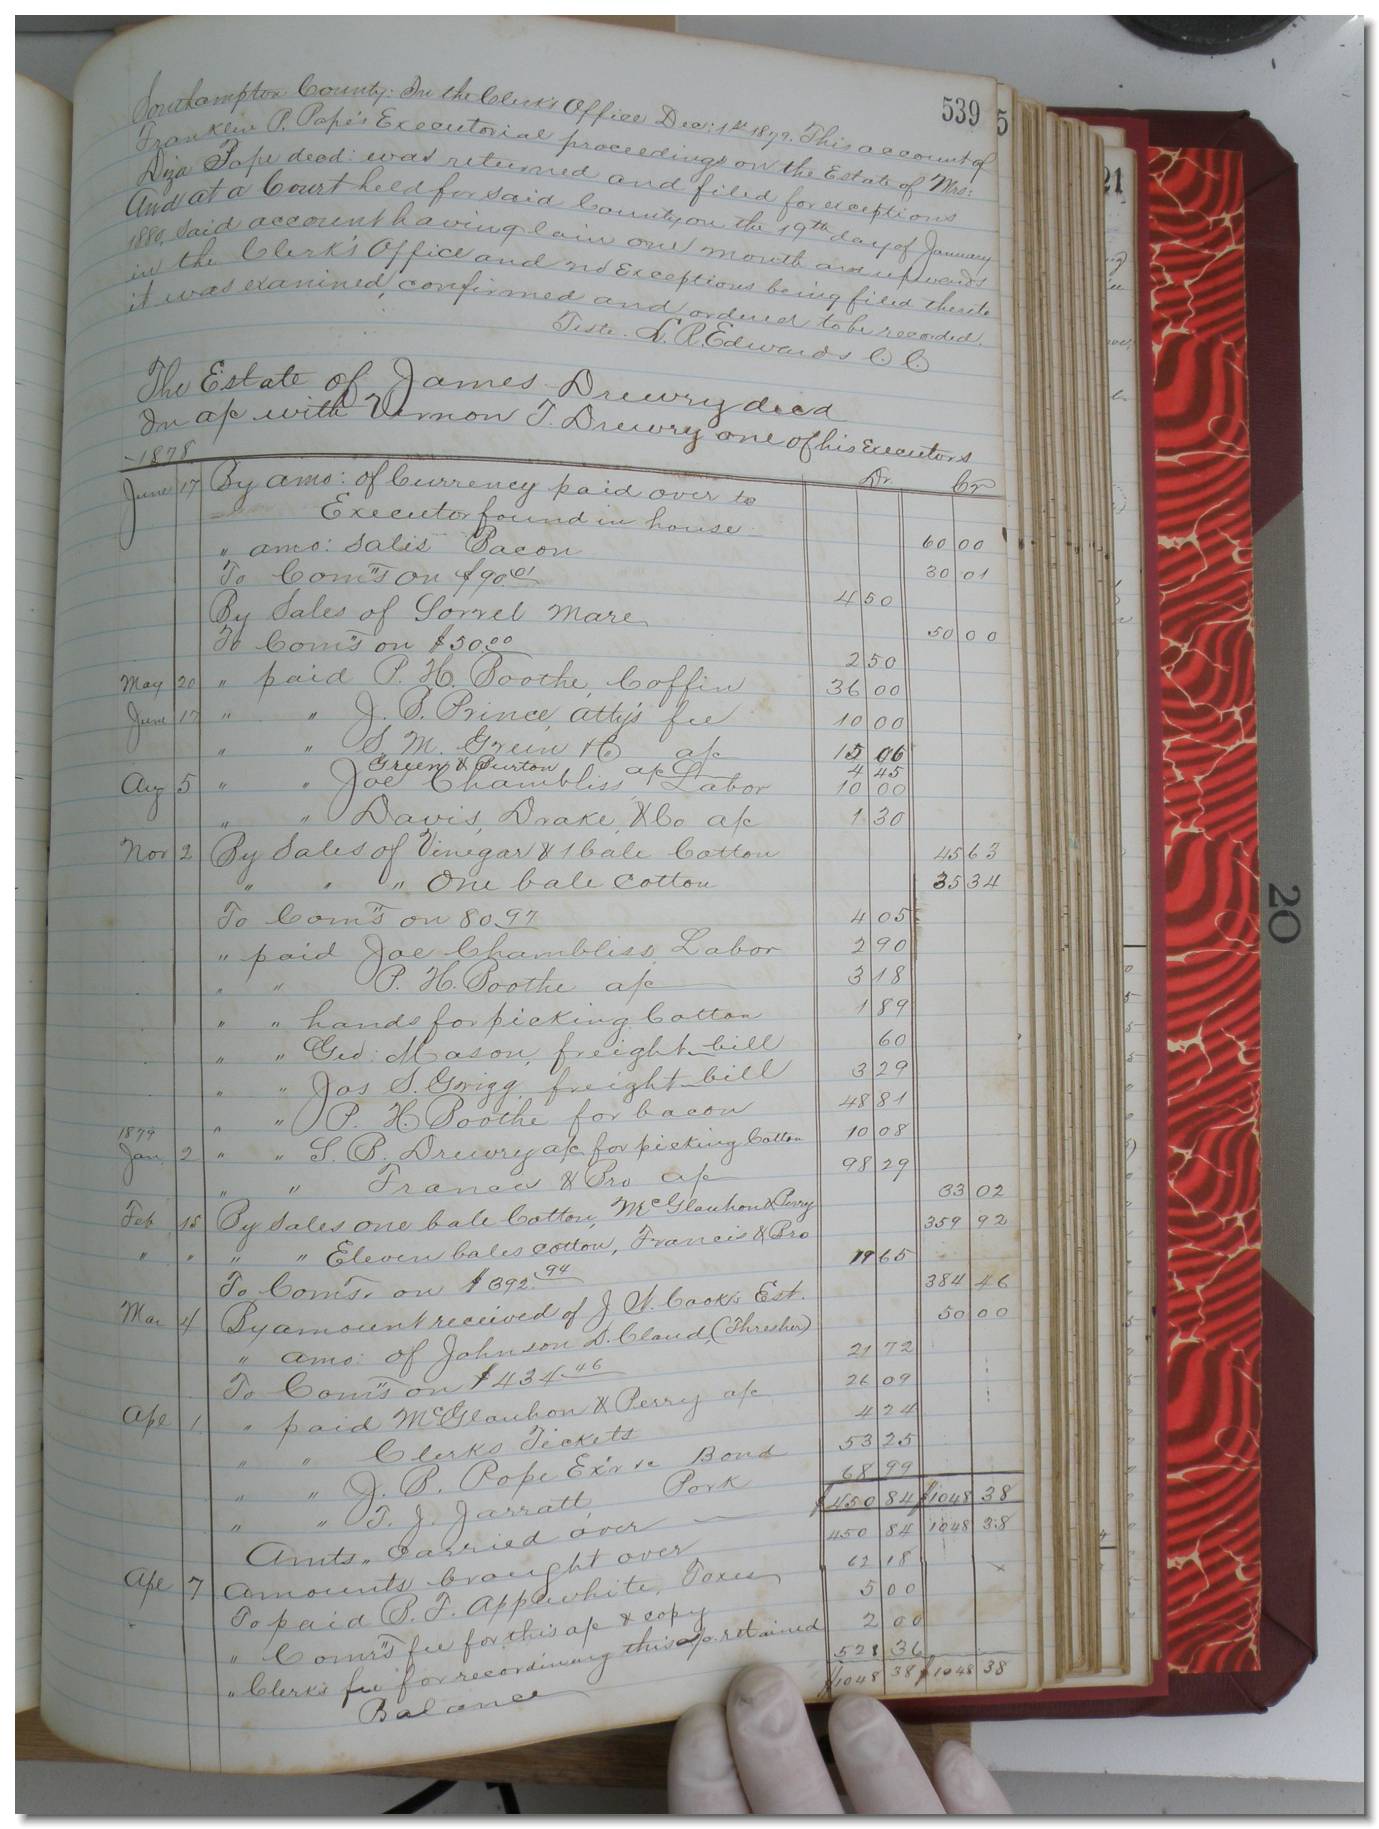 539
5
21
Southampton County: In the Clerk's Office Dec: 1st 1879. This account of
Franklin P. Pope's Executorial proceedings on the Estate of Mrs:
Liza Pope decd: was returned and filed for exceptions
And at a Court held for said County on the 19th day of January
1880, said account having lain one month and upwards
in the Clerk's Office and no Exceptions being filed thereto
it was examined, confirmed and ordered to be recorded.
Teste. L. R. Edwards C. C.
The Estate of James Drewry decd
In a/c with Vernon T. Drewry one of his Executors
1878 Dr Cr
June 17 By amo: of Currency paid over to
Executor found in house 60 00
" amo: Sales Bacon 30 01
To Com"s on $90.01 4 50
By Sales of Sorrel Mare 50 00
To Com"s on $50.00 2 50
May 20 " paid P. H. Boothe, Coffin 36 00
June 17 " " J. B. Prince, atty's fee 10 00
" " S. M. Green & Co a/c 15 06
Green & Burton a/c 4 45
Aug 5 " " Joe Chambliss, Labor 10 00
" " Davis, Drake, & Co a/c 1 30
Nov 2 By Sales of Vinegar & 1 bale Cotton 45 63
" " " One bale Cotton 35 34
To Com"s on 80.97 4 05
" paid Joe Chambliss, Labor 2 90
" " P. H. Boothe a/c 3 18
" " hands for picking Cotton 1 89
" " Geo: Mason, freight bill 60
" " Jas S. Grigg, freight bill 3 29
" " P. H. Boothe for bacon 48 81
1879
Jan. 2 " " S. B. Drewry a/c for picking Cotton 10 08
" " Francis & Bro a/c 98 29
Feb 15 By Sales one bale Cotton, McGlauhon & Perry 33 02
" " " " Eleven bales cotton, Francis & Bro 359 92
To Com"s. on $392.94 19 65
Mar 4 By amount received of J. N. Cook's Est. 384 46
" amo: of Johnson D. Claud, (Thresher) 50 00
To Com"s on $434.46 21 72
Ape 1 " paid McGlauhon & Perry a/c 26 09
" " Clerks Tickets 4 24
" " J. B. Pope Ex'r in Bond 53 25
" " T. J. Jarratt, Pork 68 99
Amts,, Carried over $450 84 $1048 38
Amounts brought over 450 84 1048 38
Ape 7 To paid B. F. Applewhite, Taxes 62 18
" Comr's fee for this a/c & copy 5 00
" Clerk's fee for recordining this a/c. retained 2 00
Balance 528 36
$1048 38 $1048 38
20